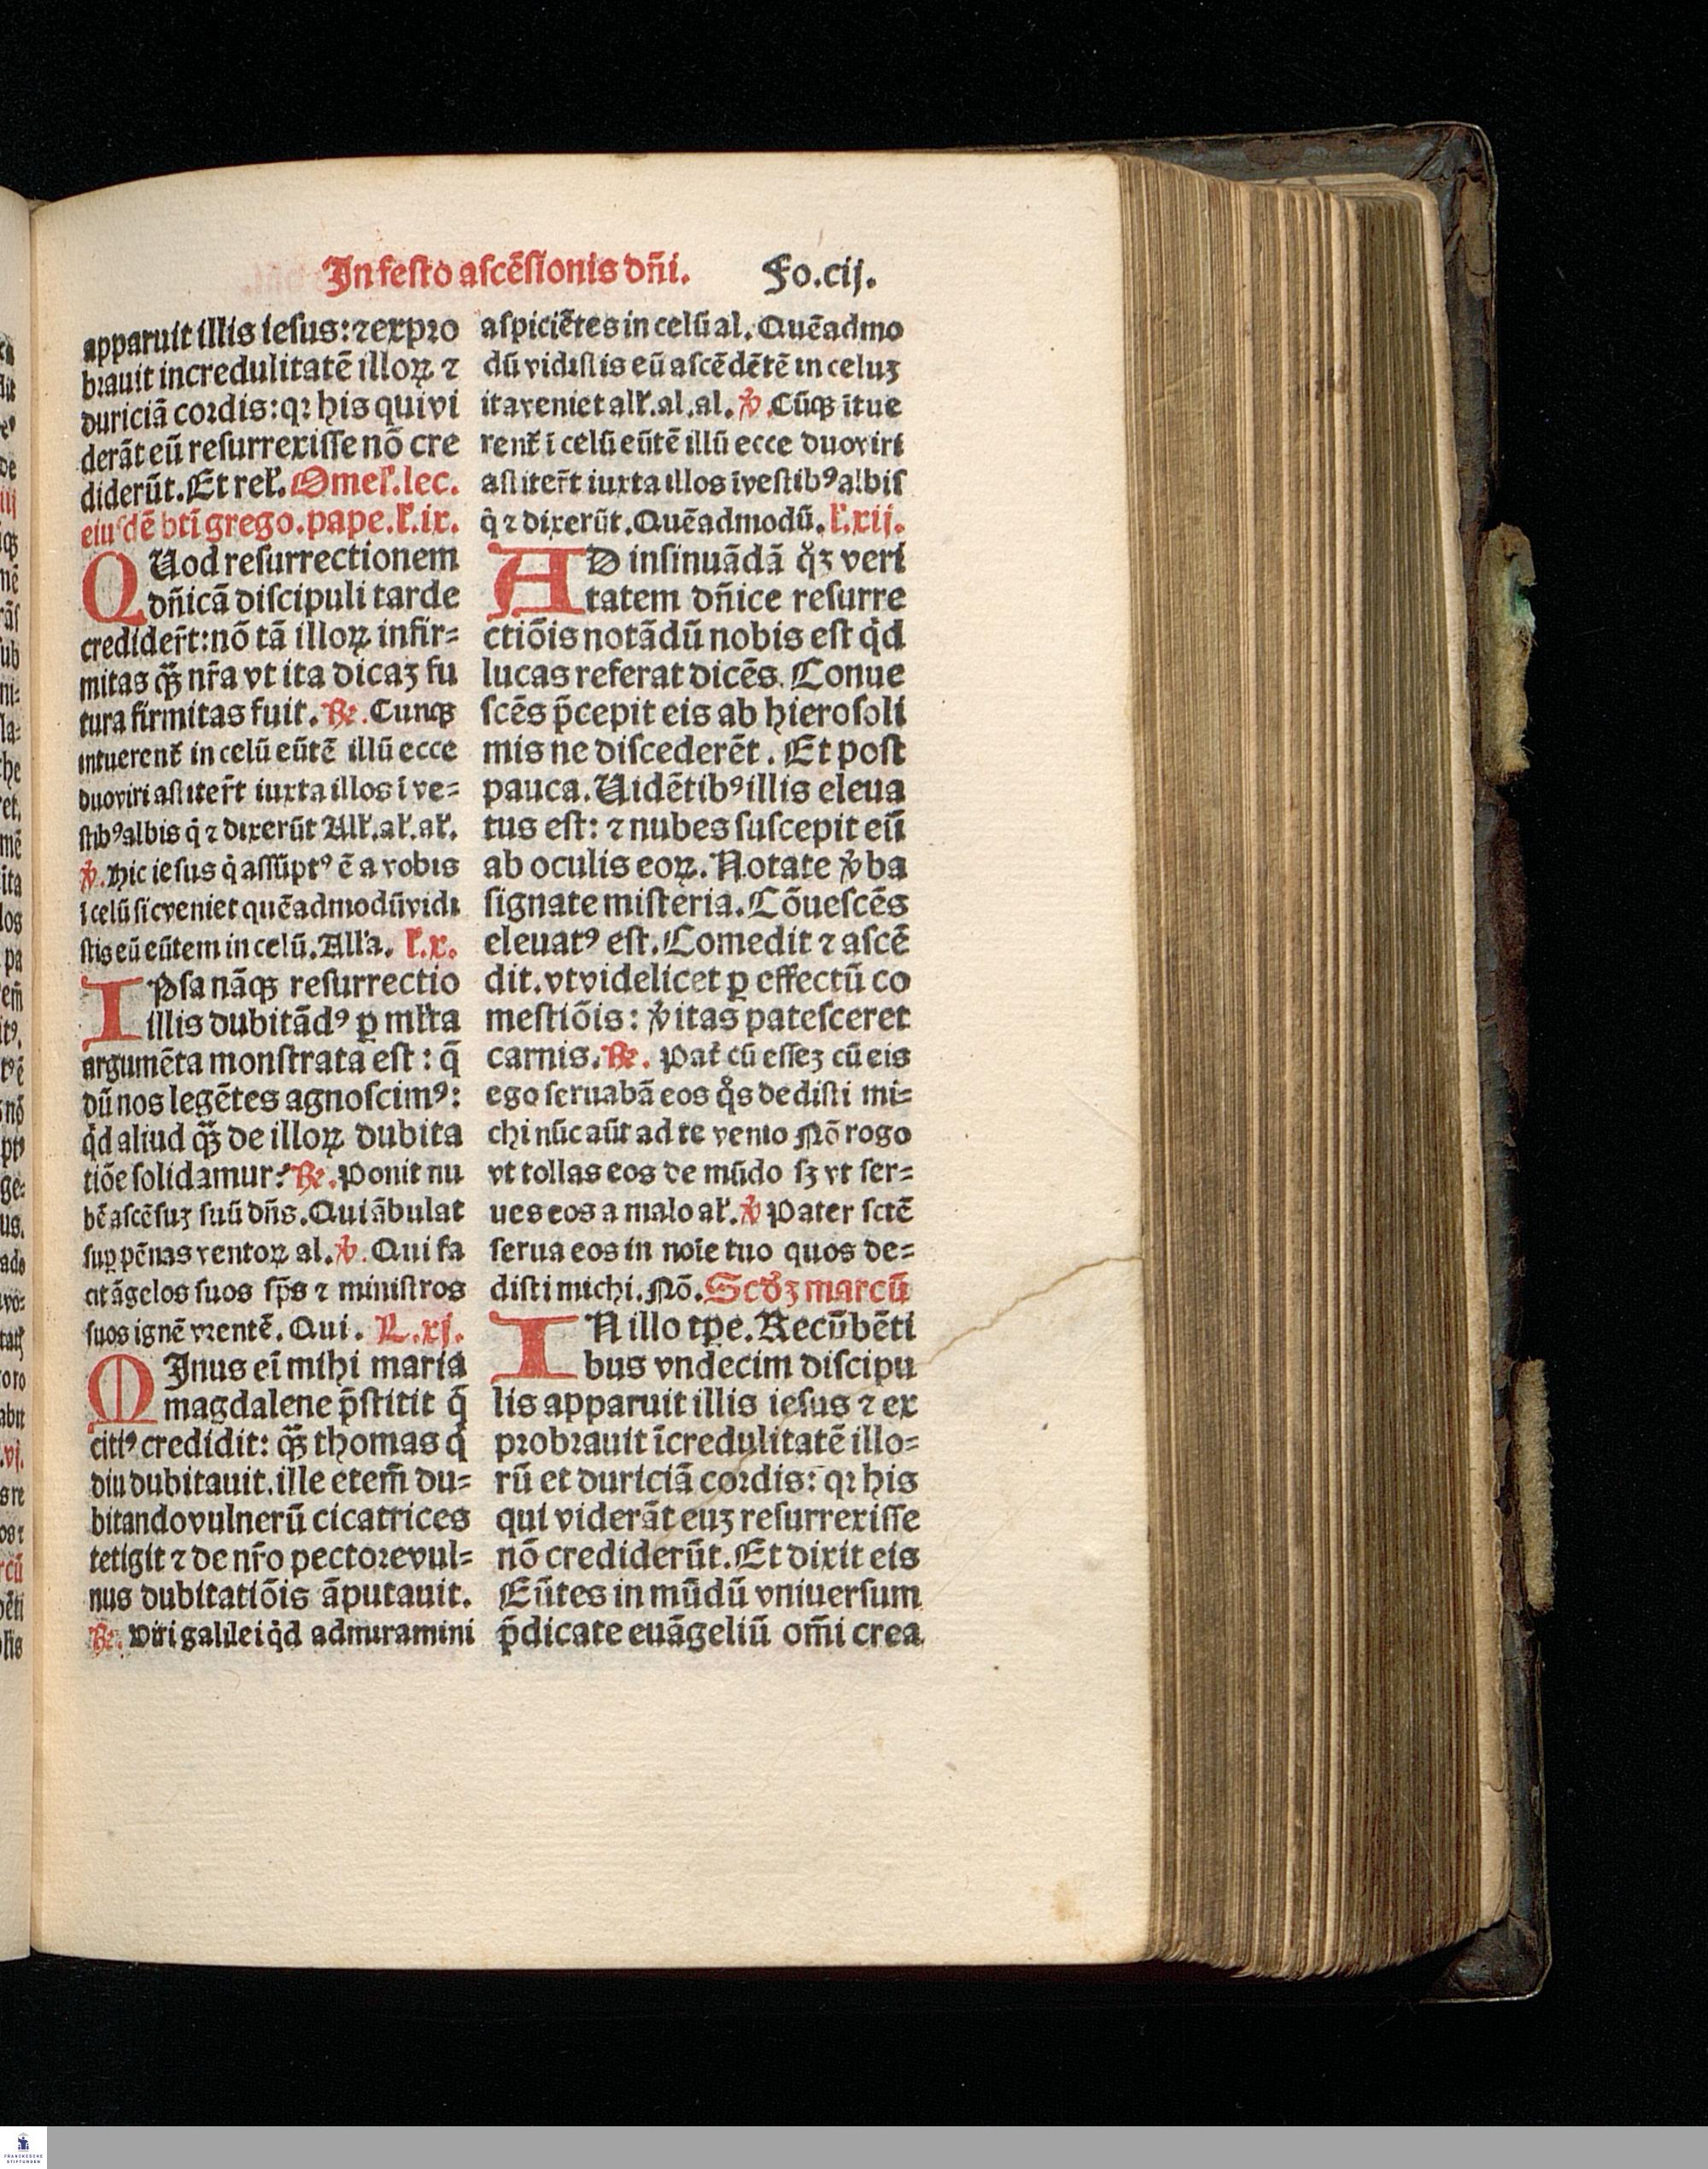 In festo ascēsionis dn̄i. Fo.cij.
apparuit illis iesus: ⁊ expro
brauit incredulitatē illoꝝ ⁊
duriciā cordis: qꝛ his qui vi
derāt eū resurrexisse nō cre
diderūt. Et rel̓. Omel̓. lec.
eiusdē bti grego. pape. l̓. ix.
QUod resurrectionem
dn̄icā discipuli tarde
credider̄t: nō tā illoꝝ infir=
mitas qꝫ̄ nr̄a vt ita dicaꝫ fu
tura firmitas fuit. ℞. Cunqꝫ
intuerent̄ in celū eūtē illū ecce
duo viri astiter̄t iuxta illos ī ve=
stibꝰ albis q̇ ⁊ dixerūt All̓. al̓. al̓.
℣. Hic iesus q̇ assūptꝰ ē a vobis
ī celū sic veniet quēadmodū vidi
stis eū eūtem in celū. All̓a. l̓. x.
IPsa nāqꝫ resurrectio
illis dubitādꝰ ꝑ ml̓ta
argumēta monstrata est: q̄
dū nos legētes agnoscimꝰ:
qd̓ aliud qꝫ̄ de illoꝝ dubita
tiōe solidamur? ℞. Ponit nu
bē ascēsuꝫ suū dn̄s. Qui ābulat
suꝑ pēnas ventoꝝ al. ℣. Qui fa
cit āgelos suos sp̄s ⁊ ministros
suos ignē vrentē. Qui. L. xj.
MInus eī mihi maria
magdalene p̄stitit q̄
citiꝰ credidit: qꝫ̄ thomas q̇
diu dubitauit. ille etem̄ du=
bitando vulnerū cicatrices
tetigit ⁊ de nr̄o pectore vul=
nus dubitatiōis āputauit.
℞. Viri galilei qd̓ admiramini
aspiciētes in celū al. Quēadmo
dū vidistis eū ascēdētē in celuꝫ
ita veniet all̓. al. al. ℣. Cūqꝫ ītue
rent̄ ī celū eūtē illū ecce duo viri
astiter̄t iuxta illos ī vestibꝰ albis
q̇ ⁊ dixerūt. Quēadmodū. l̓. xij.
AD insinuādā qͦꝫ veri
tatem dn̄ice resurre
ctiōis notādū nobis est qd̓
lucas referat dicēs. Conue
scēs p̄cepit eis ab hierosoli
mis ne discederēt. Et post
pauca. Uidētibꝰ illis eleua
tus est: ⁊ nubes suscepit eū
ab oculis eoꝝ. Notate v̓ba
signate misteria. Cōuescēs
eleuatꝰ est. Comedit ⁊ ascē
dit. vt videlicet ꝑ effectū co
mestiōis: v̓itas patesceret
carnis. ℞. Pat̄ cū esseꝫ cū eis
ego seruabā eos qͦs dedisti mi=
chi nūc aūt ad te venio Nō rogo
vt tollas eos de mūdo sꝫ vt ser=
ues eos a malo al̓. ℣ Pater sctē
serua eos in noīe tuo quos de=
disti michi. Nō. Scd̓ꝫ marcū
IN illo tꝑe. Recūbēti
bus vndecim discipu
lis apparuit illis iesus ⁊ ex
probrauit īcredulitatē illo=
rū et duriciā cordis: qꝛ his
qui viderāt euꝫ resurrexisse
nō crediderūt. Et dixit eis
Eūtes in mūdū vniuersum
p̄dicate euāgeliū om̄i crea
FRANCKESCHE
STIFTUNGEN